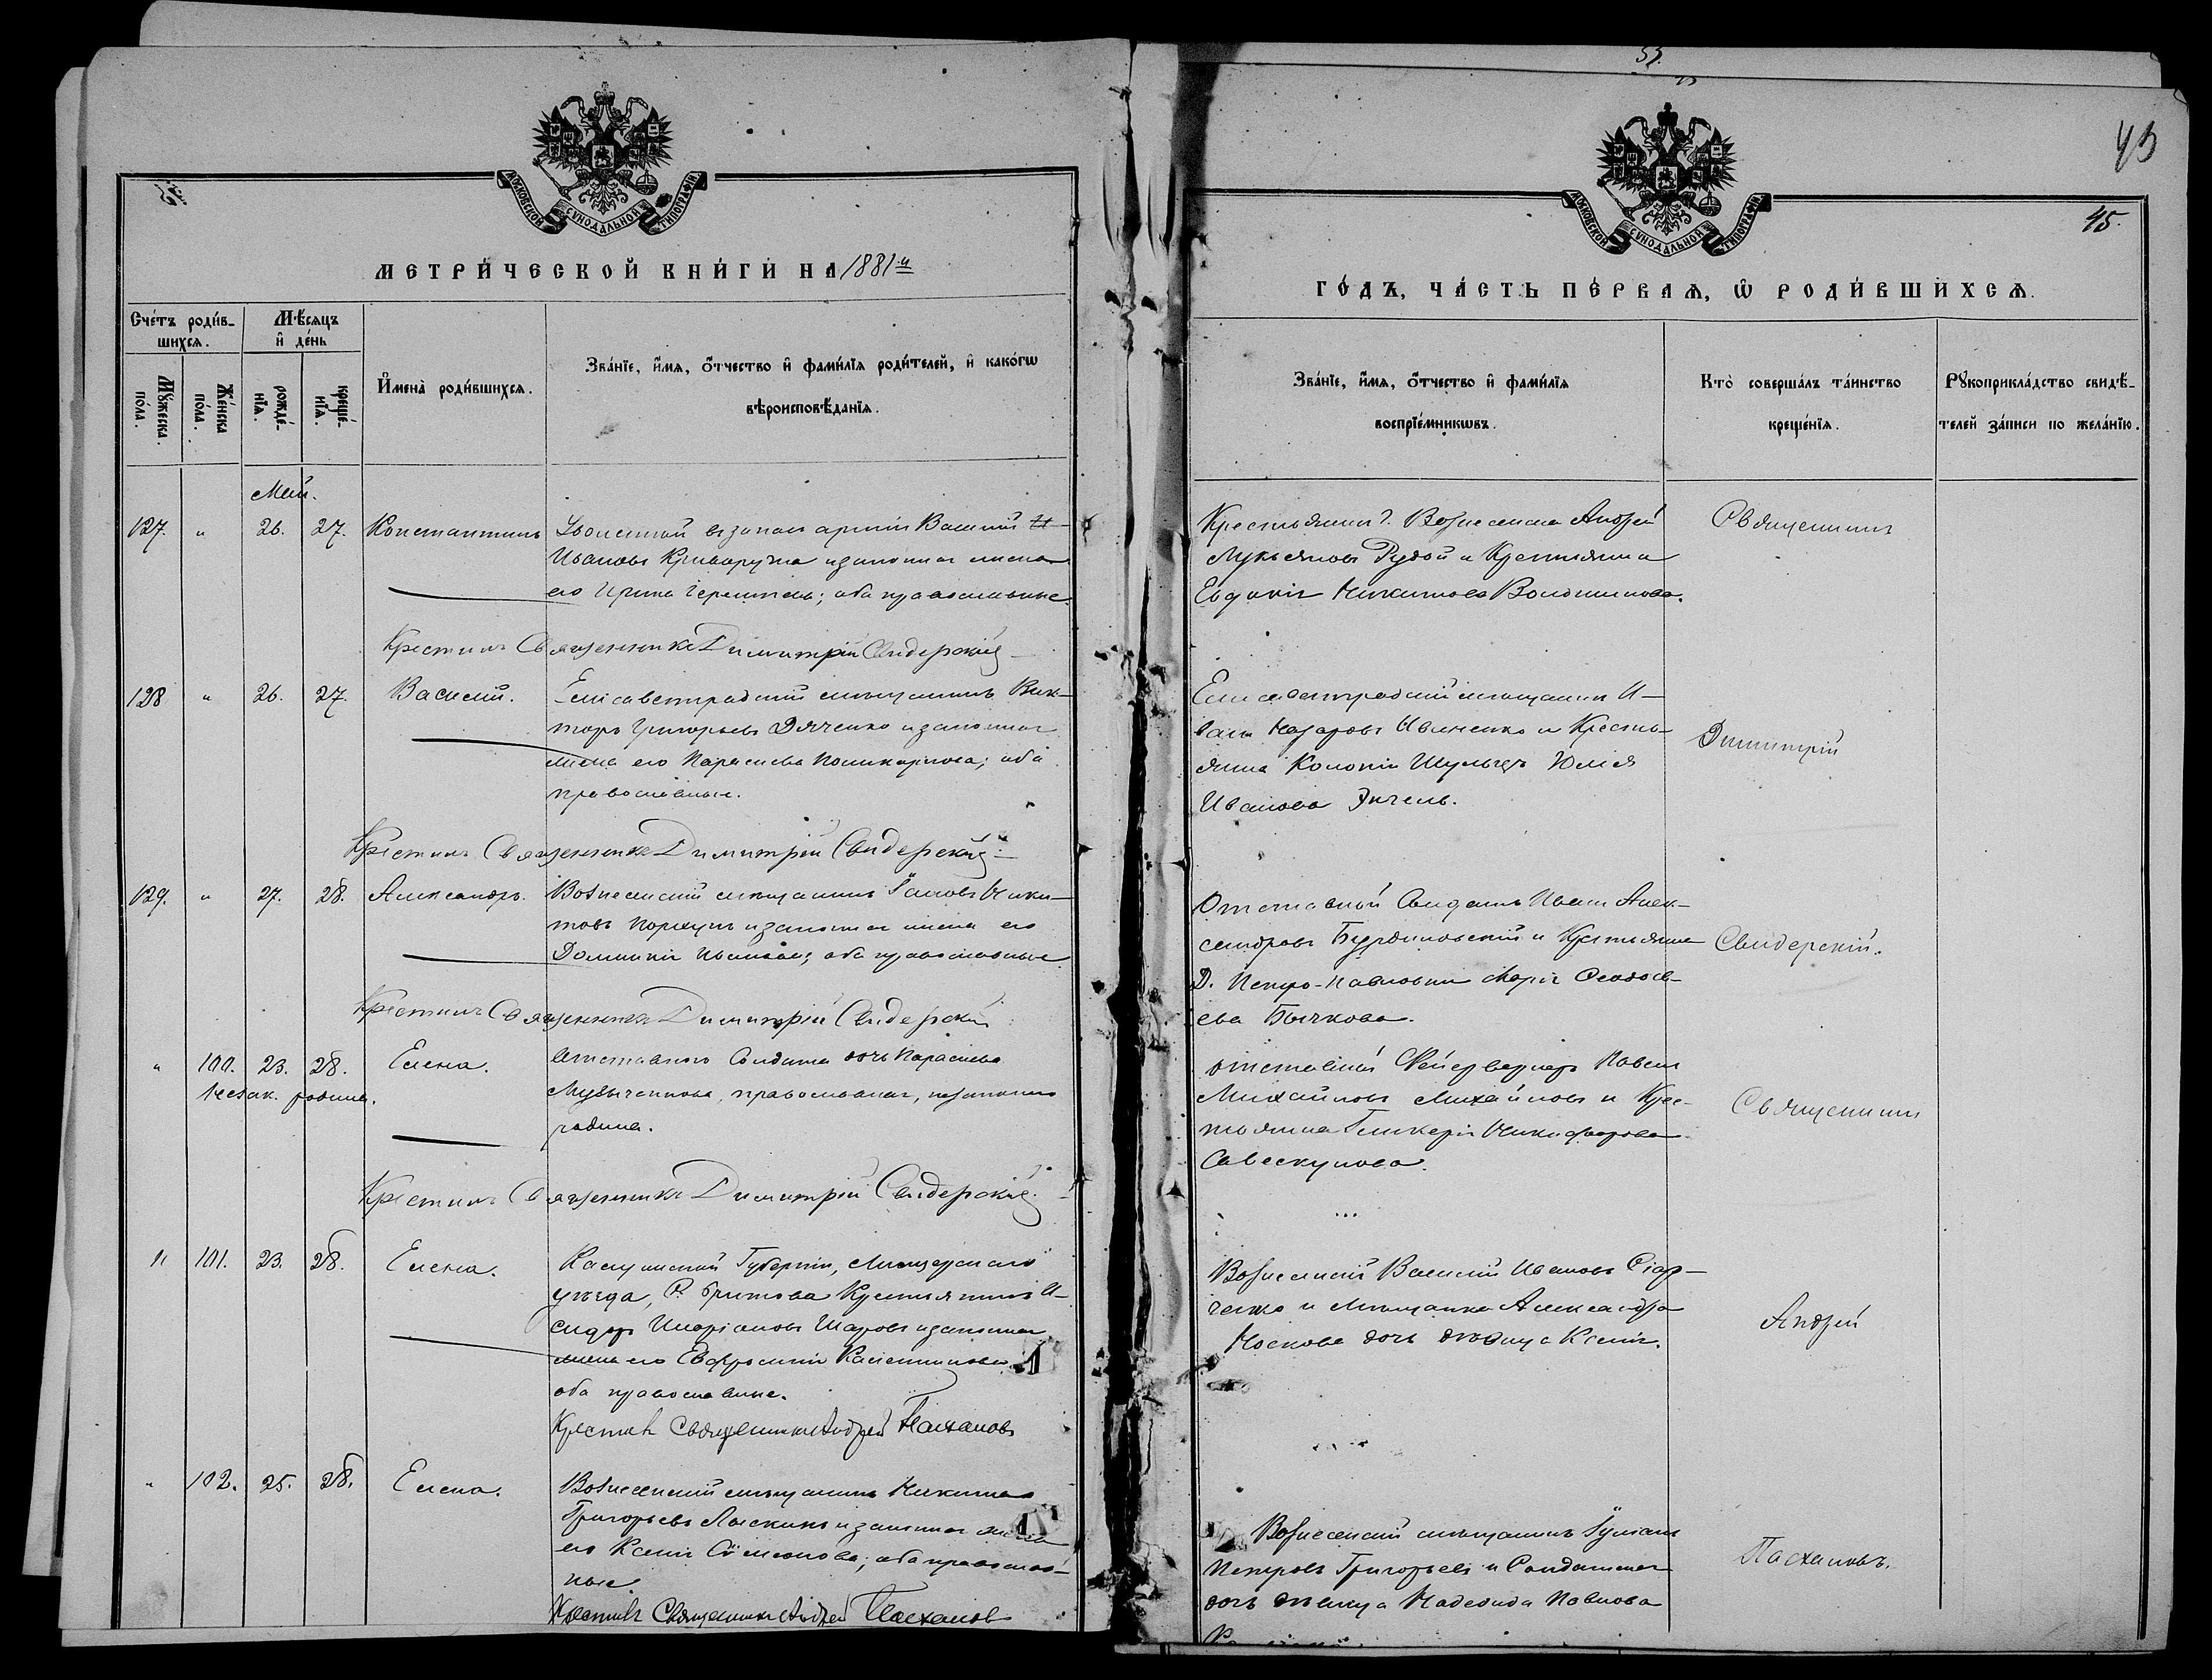 53.
43
45.
МОСКОВСКОЙ СѴНОДАЛЬНОЙ ТИПОГРАФІИ
МЕТРИ́ЧЕСКОЙ КНИ́ГИ НА 1881 й
Сче́тъ роди́в-
шихся.
Мѣ́сяцъ
и҆ де́нь
Мꙋ́жеска
по́ла.
Же́нска
по́ла.
рожде́-
нїѧ.
креще́-
нїѧ.
И҆мена̀ роди́вшихсѧ.
Зва́нїе, и҆́мѧ, ѻ҆́тчество и҆ фами́лїѧ роди́телей, и҆ како́гѡ
вѣроисповѣ́данїѧ.
Май.
127. " 26. 27. Константинъ
въ запасъ арміи Василій И-
вановъ Криворучка и законная жена
его Ирина; оба православные.
Крестилъ Священникъ Димитрій Свидерскій
128 " 26. 27. Василій. Елисаветградскій мѣщанинъ Вик-
торъ Григорьевъ Дяченко и законная
жена его Параскева Поликарпова; оба
православные.
Крестилъ Священникъ Димитрій Свидерскій
129. " 27. 28. Александръ. Вознесенскій мѣщанинъ Ники-
товъ и законная жена его
Домникія Иванова; оба православные
Крестилъ Священникъ Димитрій Свидерскій
" 100. 23. 28. Елена. Отставного Солдата дочь Параскева
Незак. родив.
православная, незаконно
родила.
Крестилъ Священникъ Димитрій Свидерскій
" 101. 23. 28. Елена. Калужской Губерніи, Мещовскаго
уѣзда, Крестьянинъ И-
сидоръ Шаровъ и законная
жена его Евфросинія
оба православные.
Крестилъ Священникъ Андрей Пасхаловъ
" 102. 25. 28. Елена. Вознесенскій мѣщанинъ Никита
Григорьевъ и законная жена
его Ксенія Сѵмеонова; оба православ-
ные.
Крестилъ Священникъ Андрей Пасхаловъ
МОСКОВСКОЙ СѴНОДАЛЬНОЙ ТИПОГРАФІИ
ГО́ДЪ, ЧА́СТЬ ПЕ́РВАѦ, Ѡ҆ РОДИ́ВШИХСѦ.
Зва́нїе, и҆́мѧ, ѻ҆́тчество и҆ фами́лїѧ
воспрїе́мникѡвъ.
Кто̀ соверша́лъ та́инство
креще́нїѧ.
Рꙋкоприкла́дство свидѣ́-
телей за́писи по жела́нїю.
Крестьянинъ г. Вознесенска Андрей
Лукьяновъ Рудой и Крестьянка
Евдокія Никитова
Священникъ
Елисаветградскій мѣщанинъ И-
ванъ Назаровъ Ивненко и Кресть-
янка Колоніи Шульцъ Юлія
Иванова Энгель.
Димитрій
Отставной Солдатъ Иванъ Алек-
сандровъ и Крестьянка
Д. Петро-Павловки Марія Феодось-
ева Бычкова.
Свидерскій.
Отставной Фейерверкеръ Павелъ
Михайловъ Михайловъ и Крес-
тьянка Гликерія Никифорова
Священникъ
Вознесенскій Василій Ивановъ
и Мѣщанка Александра
Носкова дочь дѣвица Ксенія.
Андрей
Вознесенскій мѣщанинъ
Петровъ Григорьевъ и Солдатская
дочь дѣвица Надежда Павлова
Пасхаловъ.